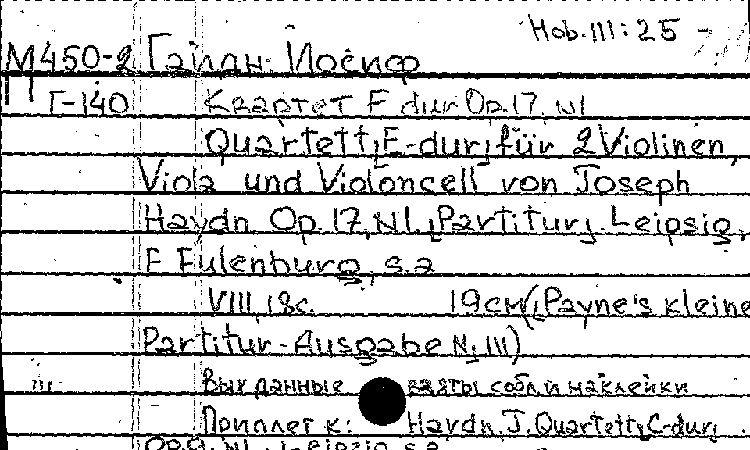 Hob. III: 25
М450-2 Гайдн Йосиф
Г-140 Квартет E dur Op.17, N1
Quartett, E-dur, für 2 Violinen,
Viola und Violoncell von Joseph
Haydn Op. 17, N1. [Partitur]. Leipsig,
E Eulenburg, s.a
VIII, 18c. 19см (Payne's kleine
Partitur-Ausgabe N: 111)
Вых данные взяты с обл. и наклейки
Приплет к: Haydn. J. Quartett, C-dur,
Op.9. N1. Leipzig s.a